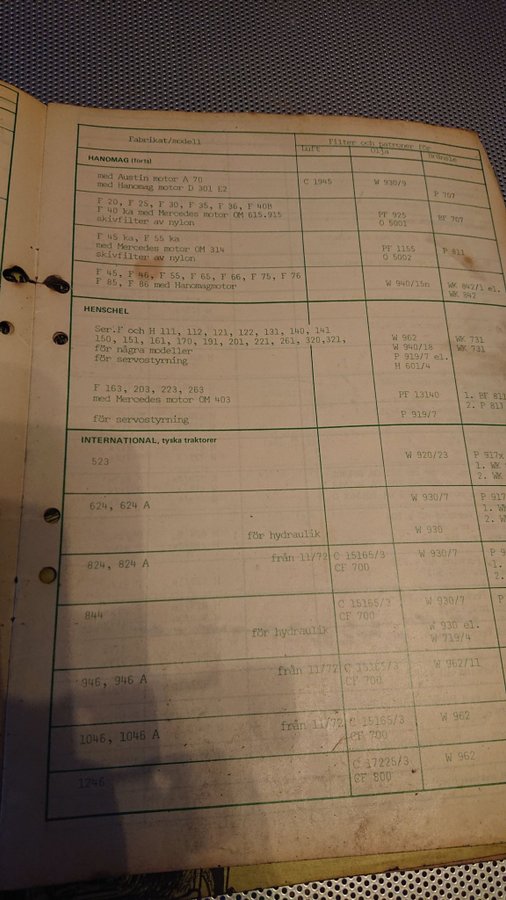 Fabrikat/modell Filter och patroner för
Luft Olja Bränsle
HANOMAG (forts)
med Austin motor A 70 C 1945 W 930/9
med Hanomag motor D 301 E2 P 707
F 20, F 25, F 30, F 35, F 36, F 40B
F 40 ka med Mercedes motor OM 615.915 PF 925 BF 707
skivfilter av nylon O 5001
F 45 ka, F 55 ka
med Mercedes motor OM 314 PF 1155 P 811
skivfilter av nylon O 5002
F 45, F 46, F 55, F 65, F 66, F 75, F 76 W 940/15n WK 842/1 el.
F 85, F 86 med Hanomagmotor WK 842
HENSCHEL
Ser.F och H 111, 112, 121, 122, 131, 140, 141
150, 151, 161, 170, 191, 201, 221, 261, 320,321, W 962 WK 731
för några modeller W 940/18 WK 731
för servostyrning P 919/7 el.
H 601/4
F 163, 203, 223, 263
med Mercedes motor OM 403 PF 13140 1. BF 811
2. P 811
för servostyrning P 919/7
INTERNATIONAL, tyska traktorer
523 W 920/23 P 917x
1. WK
2. WK
624, 624 A W 930/7 P 917
1. W
2. W
för hydraulik W 930
824, 824 A från 11/72 C 15165/3 W 930/7 P 9
CF 700 1.
2.
844 C 15165/3 W 930/7 P
CF 700
för hydraulik W 930 el.
W 719/4
946, 946 A från 11/72 C 15165/3 W 962/11
CF 700
1046, 1046 A från 11/72 C 15165/3 W 962
CF 700
1246 C 17225/3 W 962
CF 800